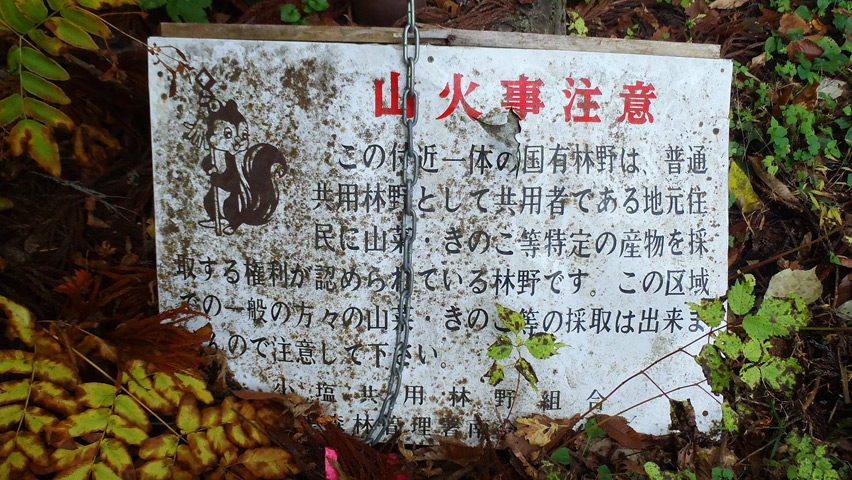 山火事注意
この付近一体の国有林野は、普通
共用林野として共用者である地元住
民に山菜・きのこ等特定の産物を採
取する権利が認められている林野です。この区域
での一般の方々の山菜・きのこ等の採取は出来ま
んので注意して下さい。
小塩共用林野組合
森林管理署